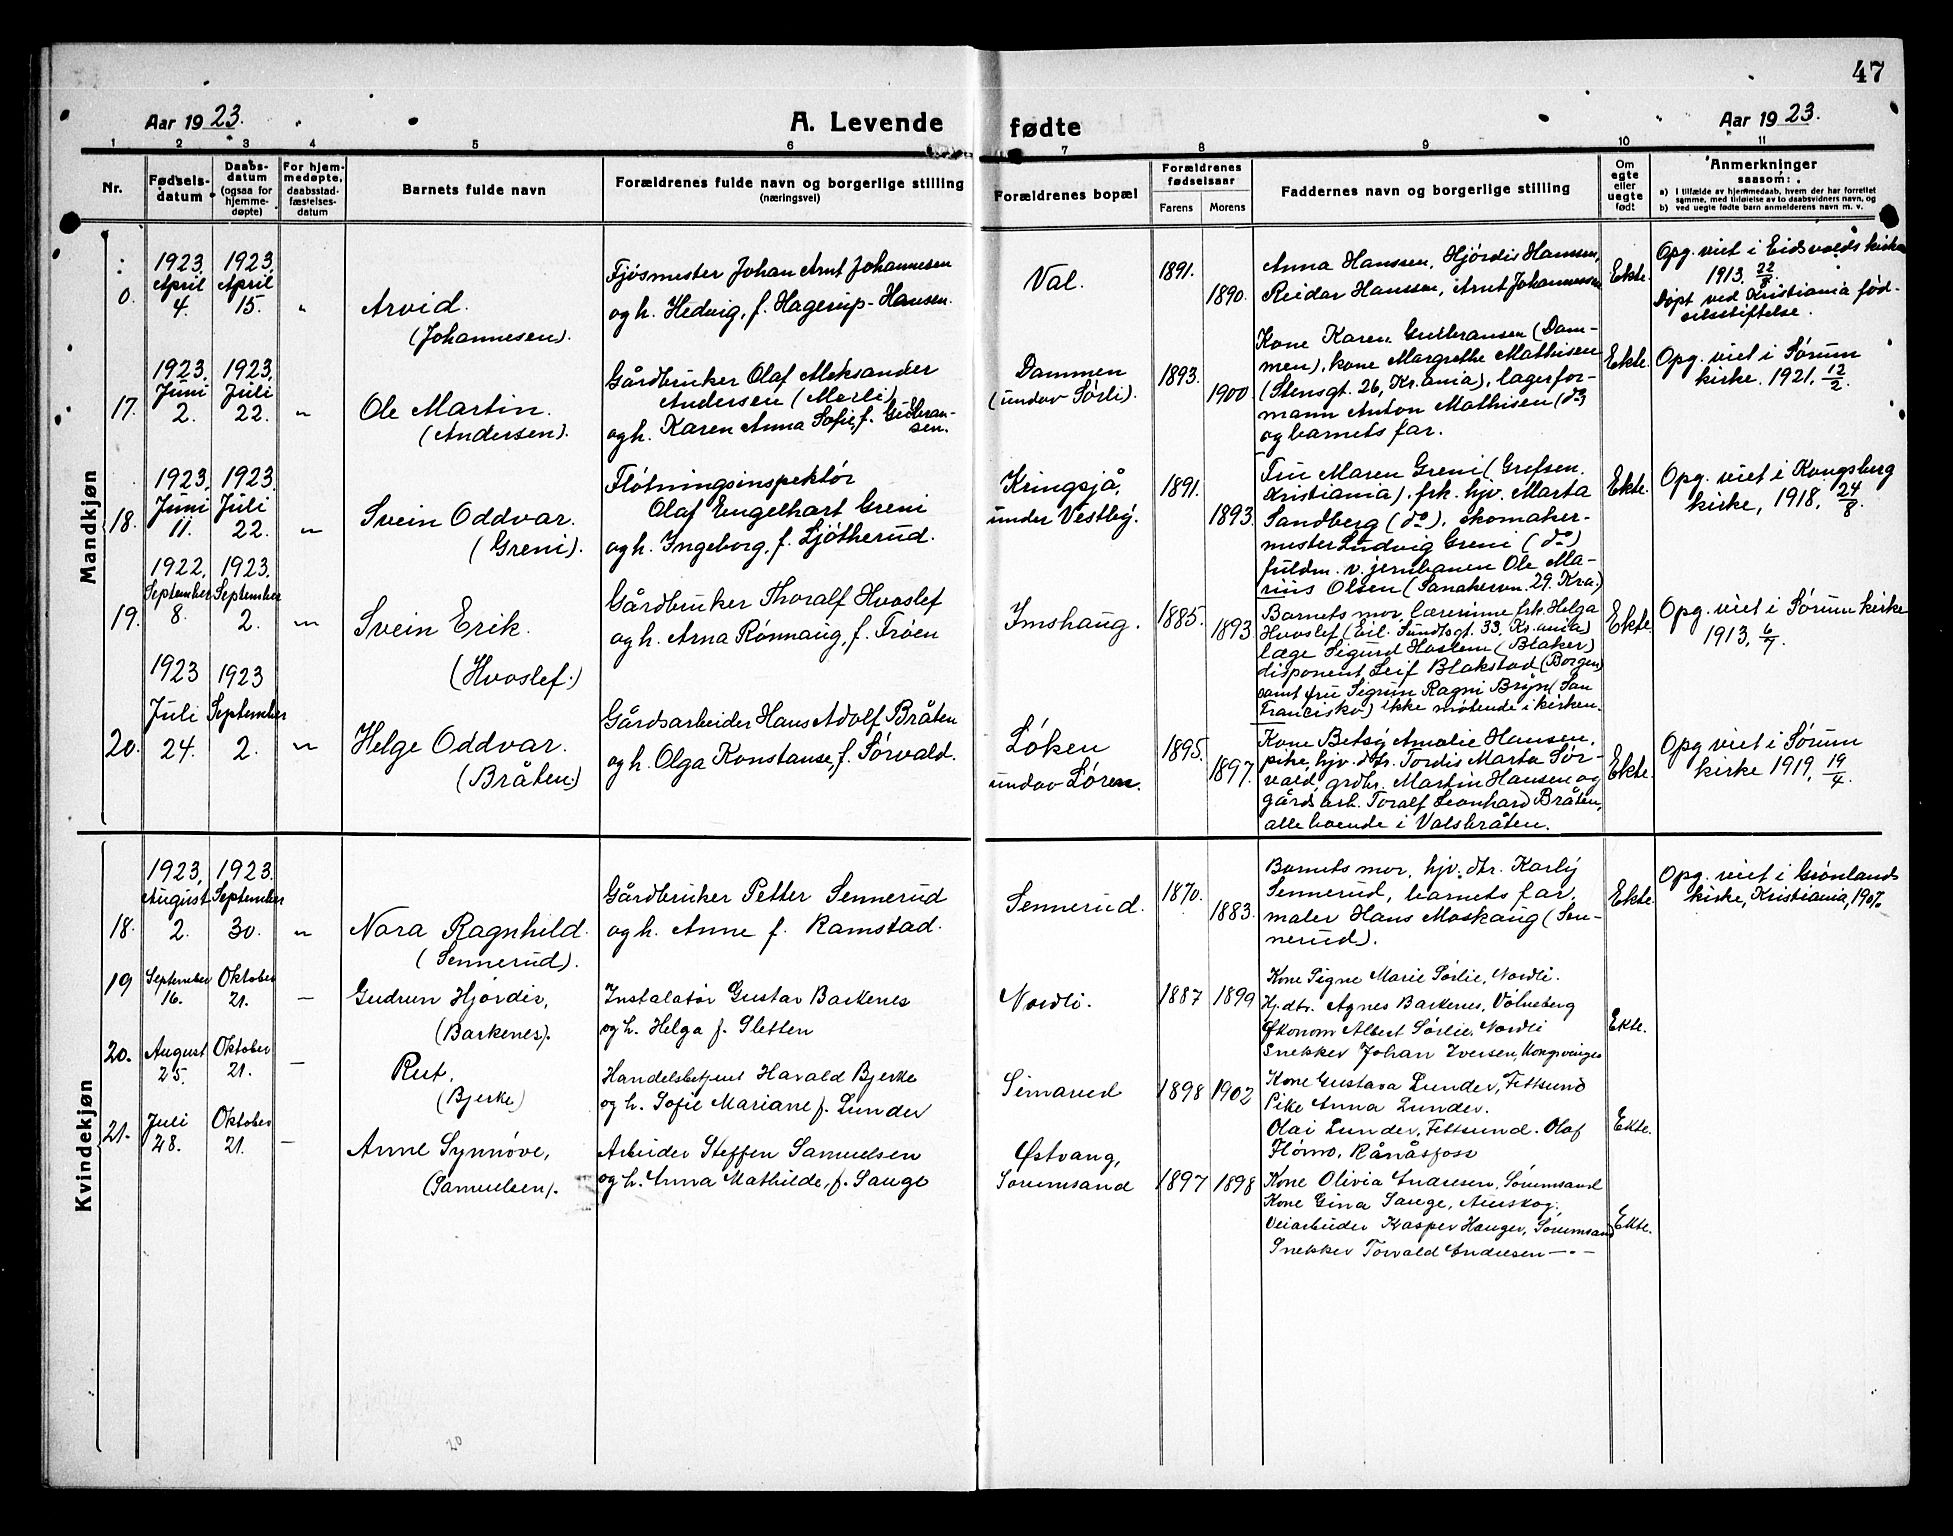 47
Aar 1923.
A. Levende
fødte
Aar 1923.
1 2 3 4 5 6 7 8 9 10 11
Nr.
Fødsels-
datum
Daabs-
datum
(ogsaa for
hjemme-
døpte)
For hjem-
medøpte,
daabsstad-
fæstelses-
datum
Barnets fulde navn
Forældrenes fulde navn og borgerlige stilling
(næringsvei)
Forældrenes bopæl
Forældrenes
fødselsaar
Farens Morens
Faddernes navn og borgerlige stilling
Om
egte
eller
uegte
født
Anmerkninger
saasom:
a) I tilfælde av hjemmedaab, hvem der har forrettet
samme, med tilføielse av to daabsvidners navn, og
b) ved uegte fødte barn anmelderens navn m. v.
Mandkjøn
0.
1923.
April
4.
1923.
April
15.
"
Arvid.
(Johannesen).
Fjøsmester Johan Arnt Johannesen
og h. Hedvig, f. Hagerup-Hansen.
Val.
1891.
1890.
Anna Hanssen, Hjørdis Hanssen,
Reidar Hanssen, Arnt Johannessen
Ekte.
Opg. viet i Eidsvolds kirke
1913. 22/8.
Døpt ved Kristiania fød-
selsstiftelse.
17.
1923.
Juni
2.
1923.
Juli
22.
"
Ole Martin.
(Andersen).
Gårdbruker Olaf Aleksander
Andersen (Mørli)
og h. Karen Anna Sofie, f. Gulbran-
sen.
Dammen
(undov Sørli).
1893.
1900
Kone Karen Gulbransen (Dam-
men), kone Margrethe Mathisen
(Stensgt. 26, Kr.ania), lagerfor-
mann Anton Mathisen (do)
og barnets far.
Ekte.
Opg. viet i Sørum
kirke. 1921, 12/2.
18.
1923.
Juni
11.
1923.
Juli
22.
"
Svein Oddvar.
(Greni).
Fløtningsinspektør
Olaf Engelhart Greni
og h. Ingeborg, f. Ljøtherud.
Kringsjå,
under Vestby.
1891.
1893.
Fru Maren Greni (Grefsen.
Kristiania). frk. hjv. Marta
Sandberg (do), skomaker-
mester Ludvig Greni (do)
fuldm. v. jernbanen Ole Ma-
rius Olsen (Sanakervn. 29. Kra.)
Ekte.
Opg. viet i Kongsberg
kirke, 1918, 24/8.
19.
1922.
September
8.
1923.
September
2.
"
Svein Erik.
(Hvoslef.)
Gårdbruker Thoralf Hvoslef
og h. Arna Rønnaug, f. Frøen
Imshaug.
1885.
1893
Barnets mor, lærerinne frk. Helga
Hvoslef (Eil. Sundtsgt. 33, Kr.ania)
læge Sigurd Haslem (Blaker)
disponent Leif Blakstad (Borgen)
samt fru Sigrun Ragni Bryn (San
Francisko) ikke møtende i kirken.
Ekte.
Opg. viet i Sørum kirke
1913, 6/7.
20.
1923
Juli
24.
1923
September
2.
"
Helge Oddvar.
(Bråten)
Gårdsarbeider Hans Adolf Bråten
og h. Olga Konstanse, f. Sørvald.
Løken
undov Løren.
1895.
1897.
Kone Betsy Amalie Hansen,
pike, hjv. dtr. Tordis Marta Sør-
vald, grdbr. Martin Hansen og
gårdsarb. Toralf Leonhard Bråten,
alle boende i Valsbråten.
Ekte.
Opg viet i Sørum
kirke 1919, 19/4.
Kvindekjøn
18.
1923.
August
2.
1923.
September
30.
"
Nora Ragnhild.
(Sennerud).
Gårdbruker Petter Sennerud
og h. Anne f. Ramstad.
Sennerud.
1870.
1883.
Barnets mor, hjv. dtr. Karly
Sennerud, barnets far,
maler Hans Moskaug (Sen-
nerud).
Ekte.
Opg. viet i Grønlands
kirke, Kristiania, 190
19
September
16.
Oktober
21.
—
Gudrun Hjørdis,
(Barkenes).
Instalatør Gustav Barkenes
og h. Helga f. Sletten
Nordli.
1887 1899
Kone Signe Marie Sørlie, Nordli.
Hj. dtr. Agnes Barkenes, Volneberg
Økonom Albert Sørlie, Nordli
Snekker Johan Iversen, Kongsvinger
Ekte.
20.
August
25.
Oktober
21.
—
Rut,
(Bjerke)
Handelsbetjent Harald Bjerke
og h. Sofie Mariane f. Lunder
Simarud
1898 1902
Kone Gustava Lunder, Fetsund
Pike Anna Lunder.
Olai Lunder, Fetsund. Olaf
Flørno, Rånåsfoss
Ekte.
21.
Juli
28.
Oktober
21.
—
Anne Synnøve,
(Samuelsen).
Arbeider Steffen Samuelsen
og h. Anna Mathilde, f. Sauge
Østvang,
Sørumsand
1897 1898
Kone Olivia Andresen, Sørumsand
Kone Gina Sauge, Aurskog.
Veiarbeider Kasper Hauger, Sørumsand
Snekker Torvald Andresen —"—
Ekte.
20